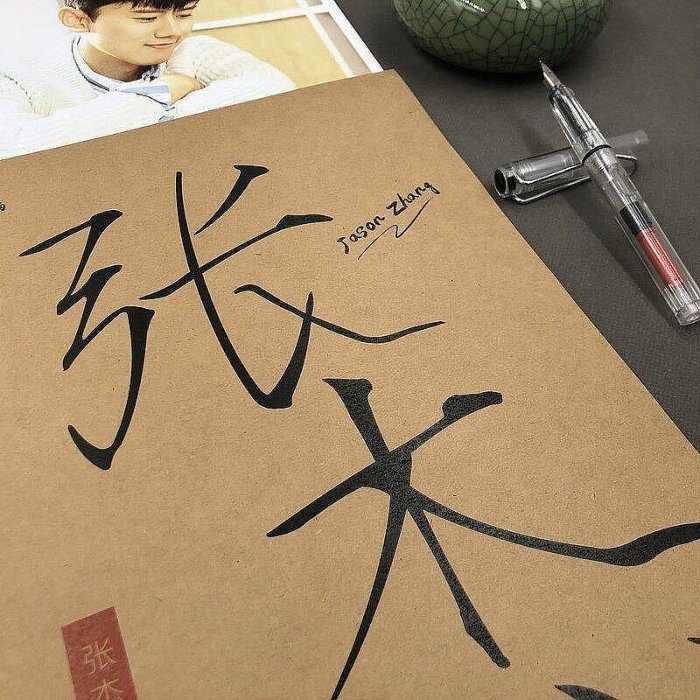 张
Jason Zhang
杰
张
杰